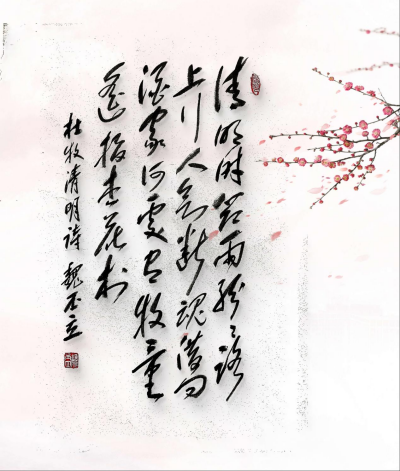 清明时节雨纷纷路
上行人欲断魂借问
酒家何处有牧童
遥指杏花村
杜牧清明诗 魏丕立